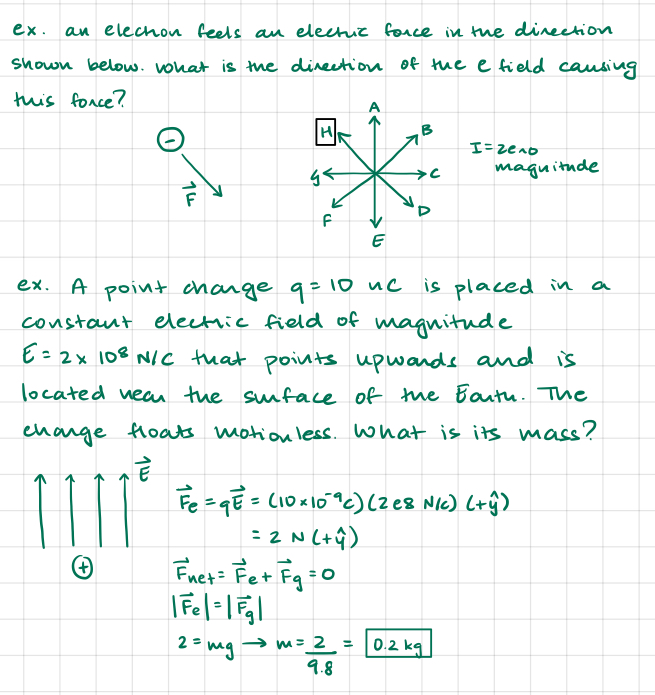 ex. an electron feels an electric force in the direction
shown below. what is the direction of the e field causing
this force?
A
H
B
I = zero
magnitude
-
G
C
F
F
D
E
ex. A point charge q = 10 nC is placed in a
constant electric field of magnitude
E = 2 x 10⁸ N/C that points upwards and is
located near the surface of the Earth. The
charge floats motionless. What is its mass?
E⃗
F⃗e = qE⃗ = (10 x 10⁻⁹C) (2e8 N/C) (+ŷ)
= 2 N (+ŷ)
+
F⃗net = F⃗e + F⃗g = 0
|F⃗e| = |F⃗g|
2 = mg → m = 2/9.8 = 0.2 kg